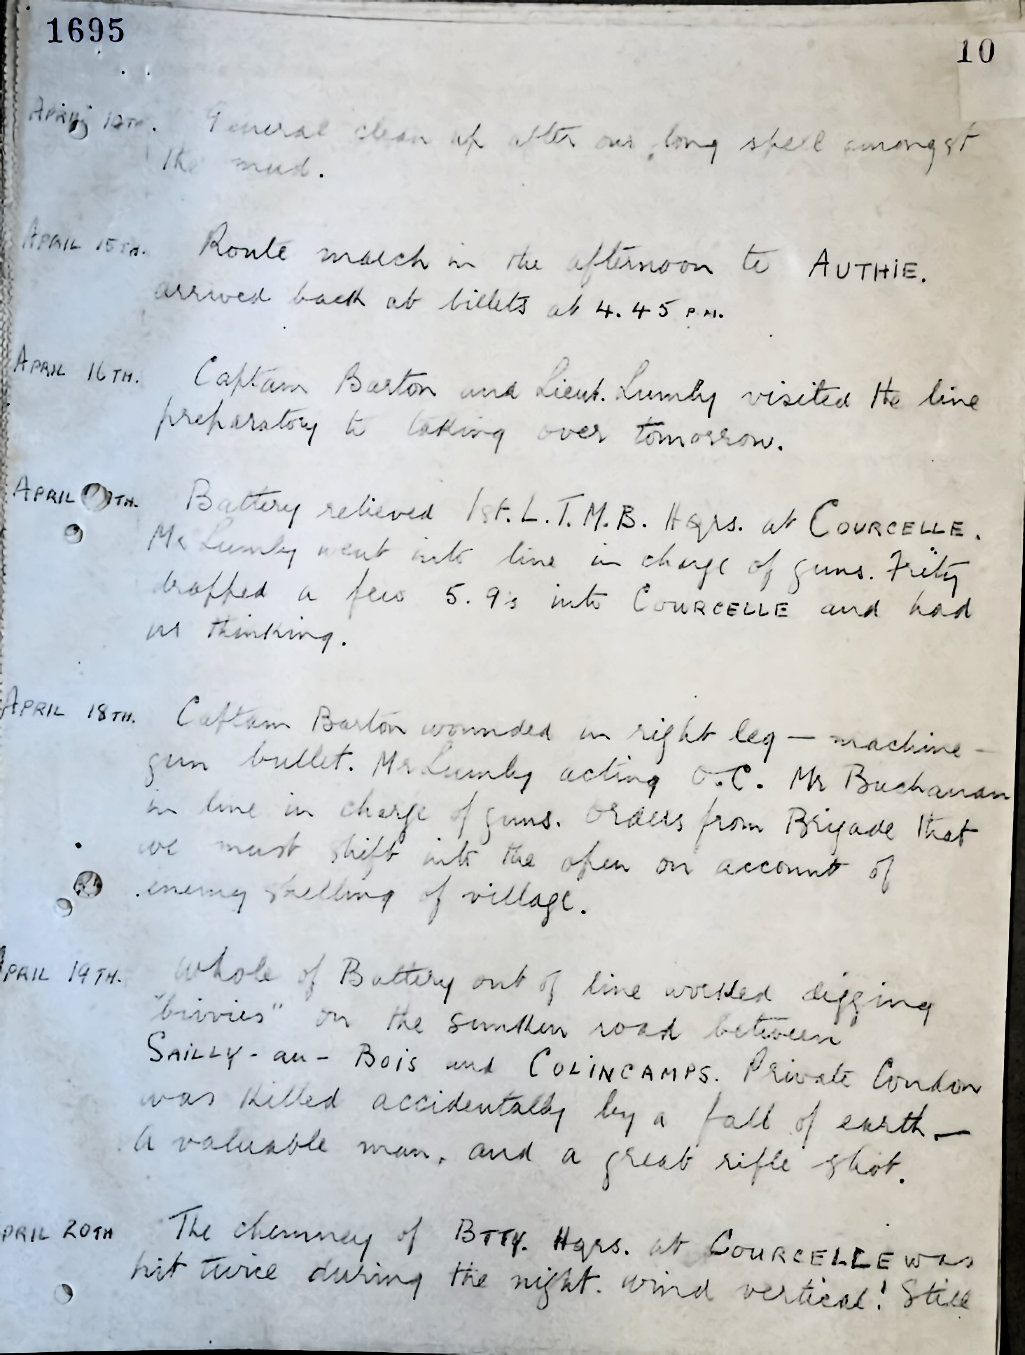 1695
10
General clean up after our long spell amongst
the mud.
APRIL 15TH. Route march in the afternoon to AUTHIE.
arrived back at billets at 4.45 P.M.
APRIL 16TH. Captain Barton and Lieut. Lumby visited the line
preparatory to taking over tomorrow.
APRIL TH. Battery relieved 1st. L.T.M.B. Hqrs. at COURCELLE.
Mr Lumby went into line in charge of guns. Fritz
dropped a few 5.9's into COURCELLE and had
us thinking.
APRIL 18TH. Captain Barton wounded in right leg — machine -
gun bullet. Mr Lumby acting O.C. Mr Buchanan
in line in charge of guns. Orders from Brigade that
we must shift into the open on account of
enemy shelling of village.
APRIL 19TH. Whole of Battery out of line worked digging
"bivvies" on the sunken road between
SAILLY-au-BOIS and COLINCAMPS. Private Condon
was killed accidentally by a fall of earth —
A valuable man, and a great rifle shot.
PRIL 20TH The chimney of BTTY. Hqrs. at COURCELLE was
hit twice during the night. Wind vertical! Still